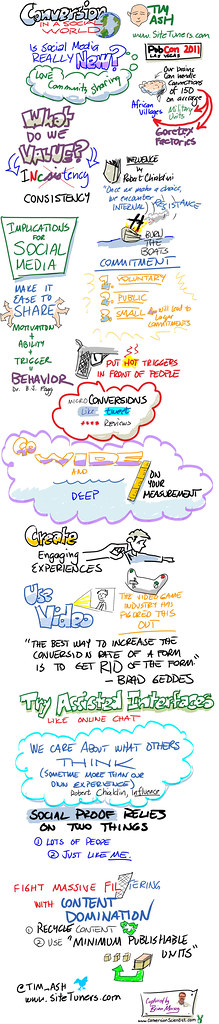 Conversion
IN A SOCIAL
WORLD
TIM
ASH
www.SiteTuners.com
Is Social Media
REALLY New?
LOVE
Community Sharing
PubCon 2011
LAS VEGAS
Our brains
Can Handle
Connections
of 150
on average
African
Villages
Military
Units
Goretex
Factories
What
DO WE
VALUE?
INConsistency
CONSISTENCY
INFLUENCE
by Robert Chialdini
"Once we make a choice,
we encounter
INTERNAL RESISTANCE
BURN
THE
BOATS
COMMITMENT
1. VOLUNTARY
2. PUBLIC
3. SMALL
also will lead to
larger
commitments
IMPLICATIONS
FOR
SOCIAL
MEDIA
MAKE IT
EASE TO
SHARE
MOTIVATION
+
ABILITY
+
TRIGGER
=
BEHAVIOR
Dr. B.J. Fogg
PUT HOT TRIGGERS
IN FRONT OF PEOPLE
MICRO CONVERSIONS
Like tweet
Reviews
Go
WIDE
AND
DEEP
ON
YOUR
MEASUREMENT
Create
Engaging
EXPERIENCES
Use
Video
THE VIDEO GAME
INDUSTRY HAS
FIGURED THIS
OUT
"THE BEST WAY TO INCREASE THE
CONVERSION RATE OF A FORM
IS TO GET RID OF THE FORM"
- BRAD GEDDES
Try Assisted Interfaces
LIKE ONLINE CHAT
WE CARE ABOUT WHAT OTHERS
THINK
(SOMETIME MORE THAN OUR
OWN EXPERIENCE)
Robert Chialdin, Influence
SOCIAL PROOF RELIES
ON TWO THINGS
① LOTS OF PEOPLE
② JUST LIKE ME.
FIGHT MASSIVE FILTERING
WITH CONTENT
DOMINATION
① RECYCLE CONTENT
② USE "MINIMUM PUBLISHABLE
UNITS"
@TIM_ASH
www.SiteTuners.com
Captured by
Brian Massey
www.ConversionScientist.com